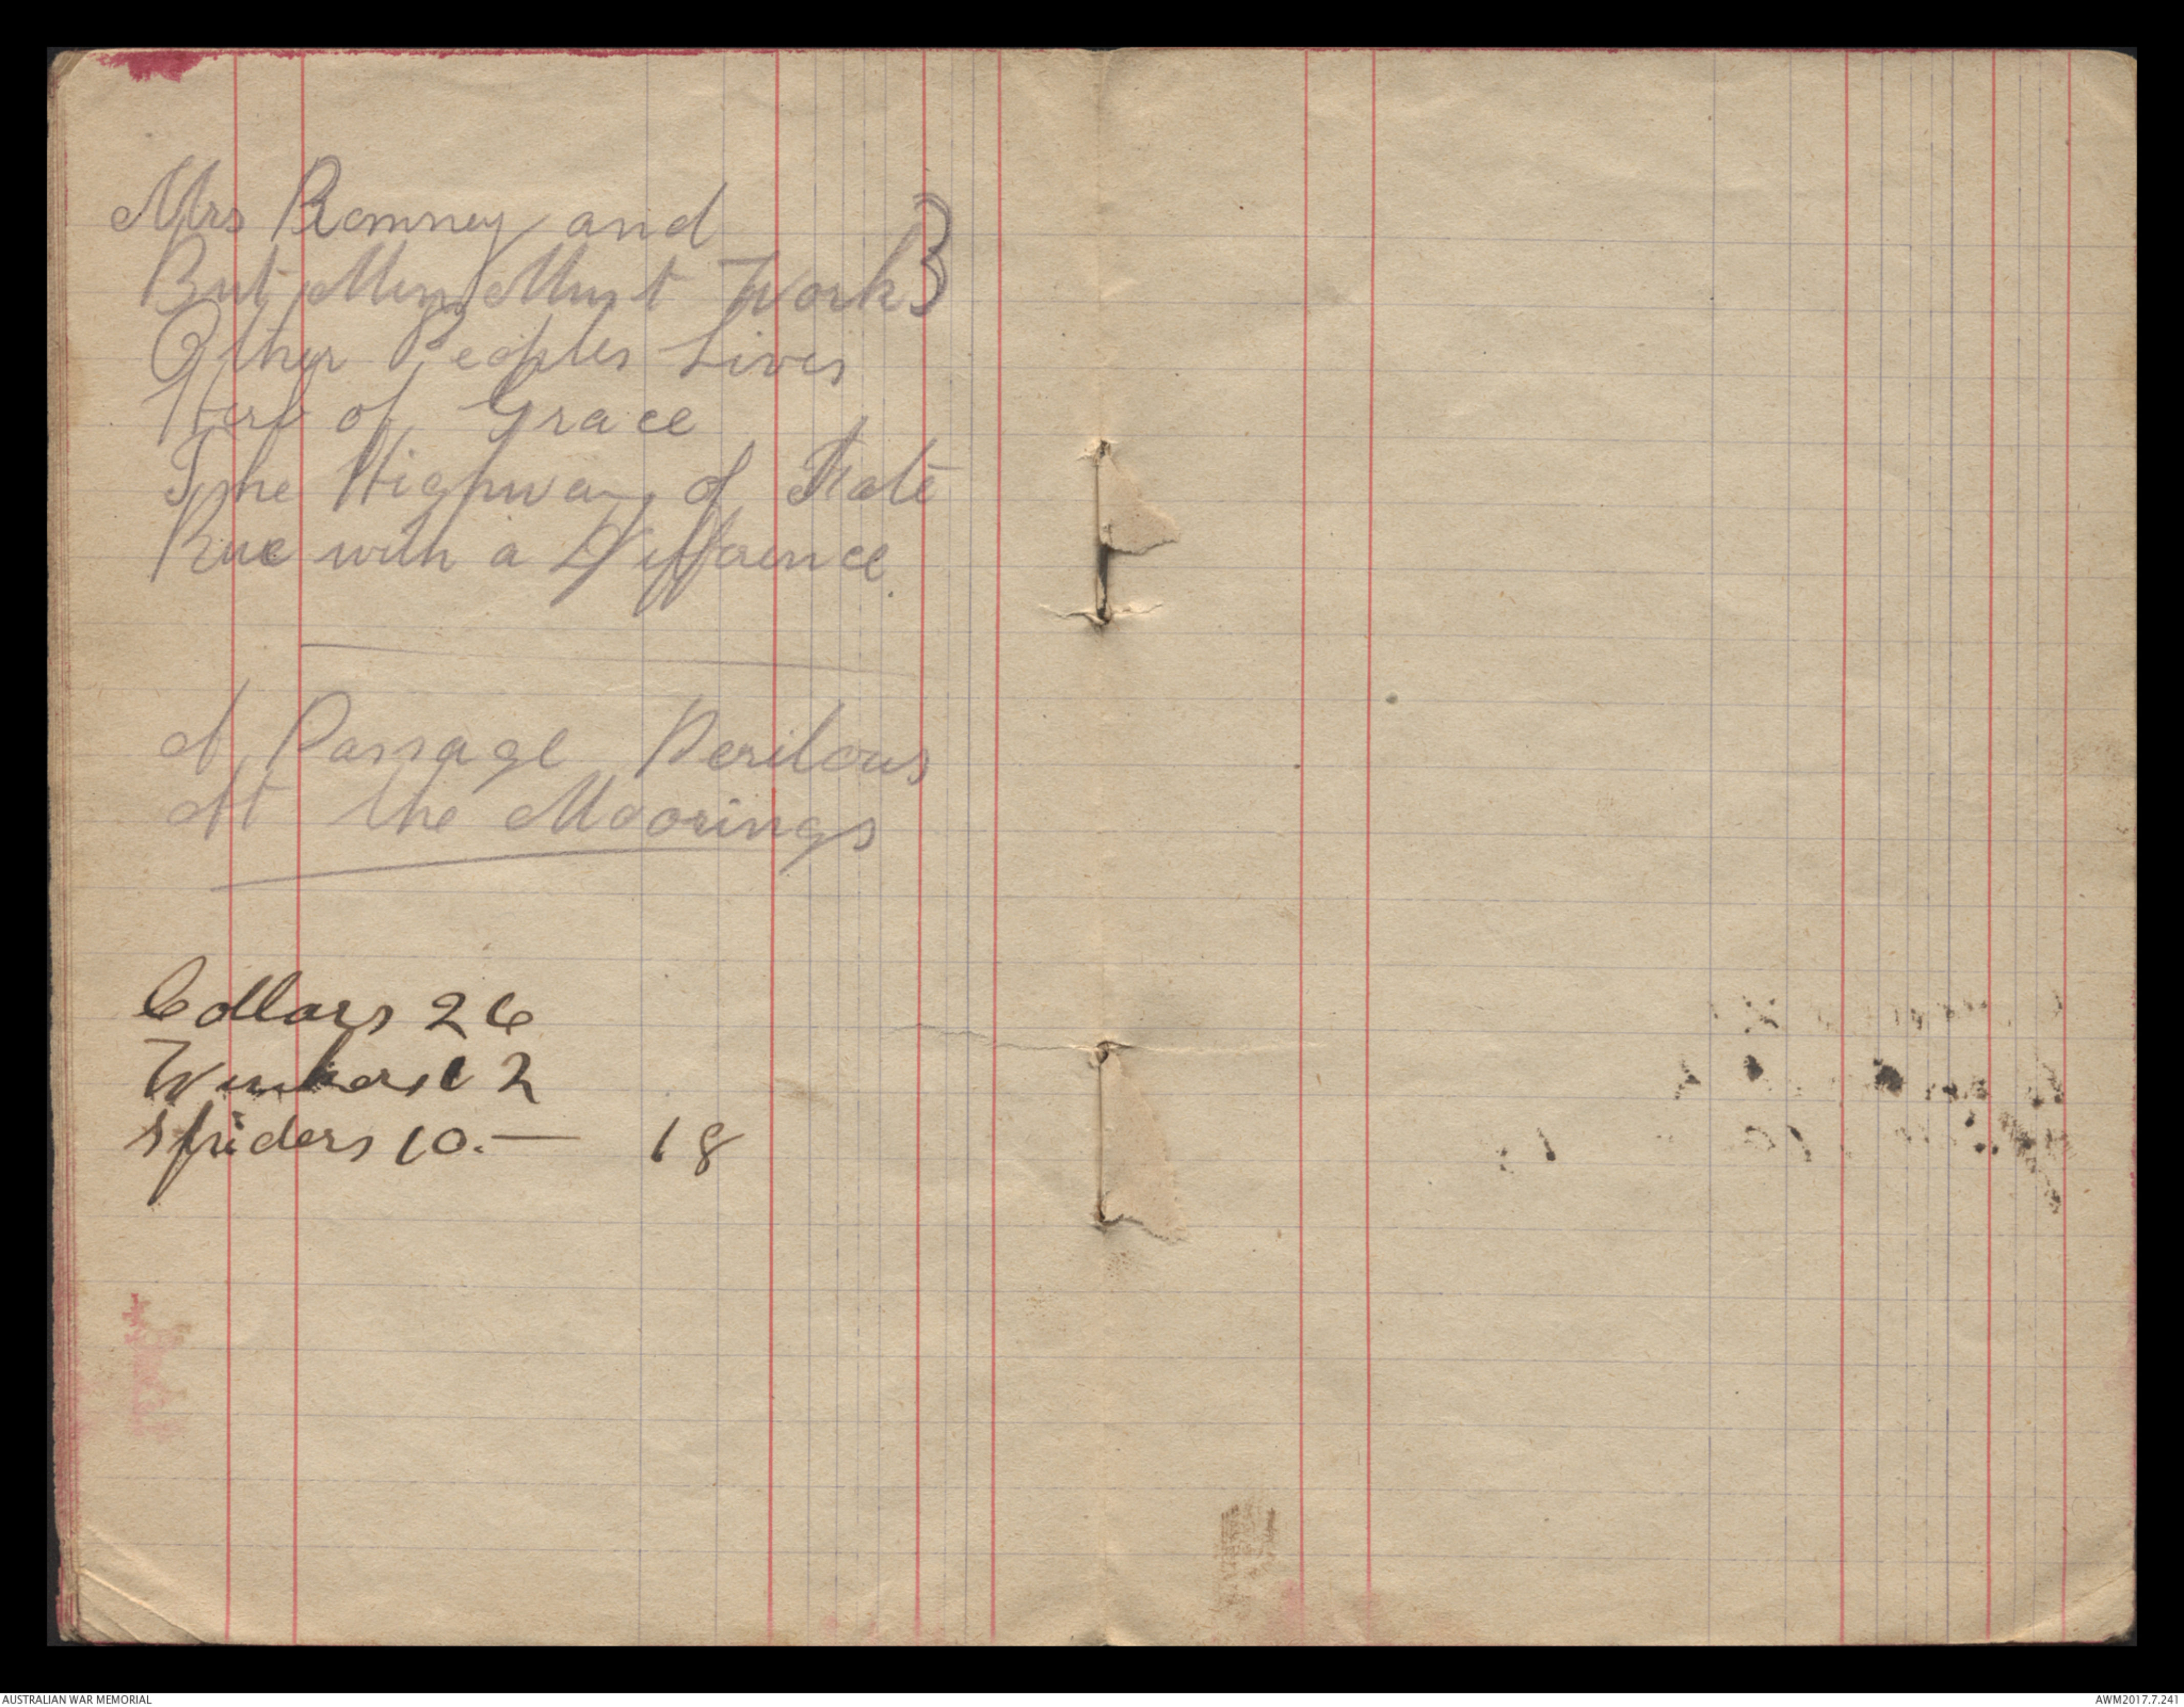 Mrs Romney and
But Men Must Work }
Other Peoples Lives
Herb of Grace
The Highway of Fate
Rue with a Difference.
A Passage Perilous
At the Moorings
Collars 26
2
Spiders 10.— 18
AUSTRALIAN WAR MEMORIAL
AWM2017.7.241